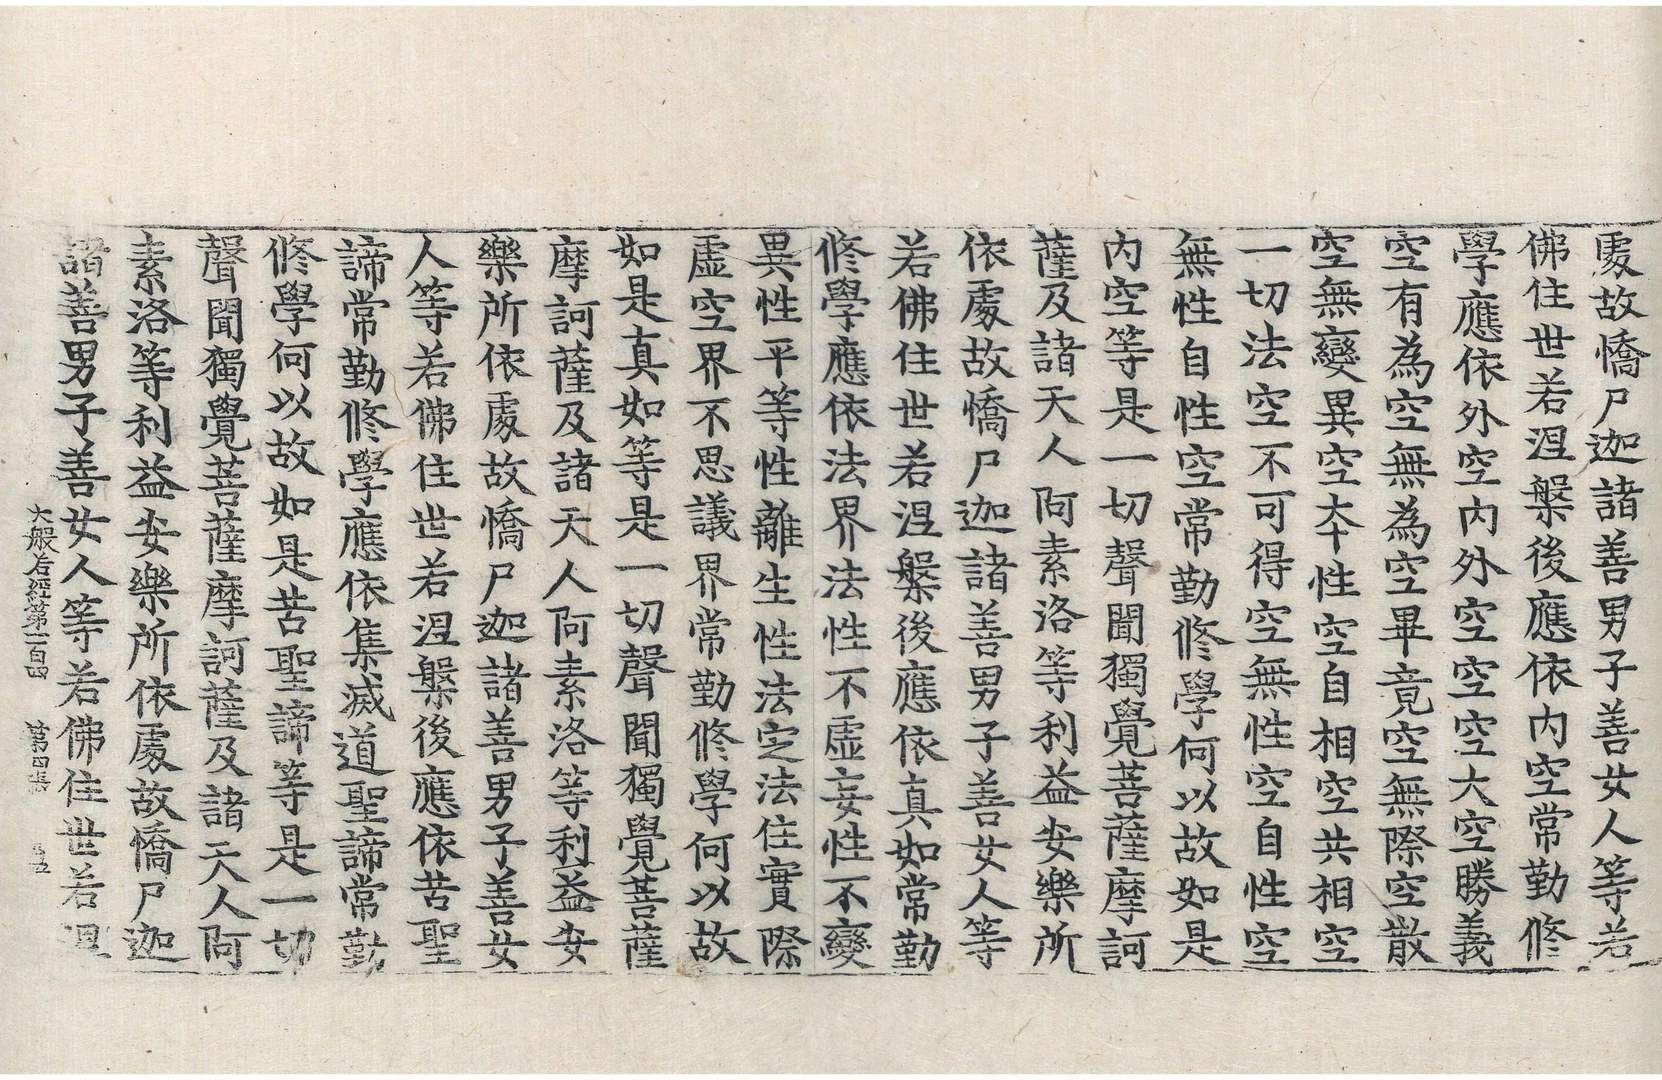 處故憍尸迦諸善男子善女人等若
佛住世若涅槃後應依內空常勤修
學應依外空內外空空空大空勝義
空有為空無為空畢竟空無際空散
空無變異空本性空自相空共相空
一切法空不可得空無性空自性空
無性自性空常勤修學何以故如是
內空等是一切聲聞獨覺菩薩摩訶
薩及諸天人阿素洛等利益安樂所
依處故憍尸迦諸善男子善女人等
若佛住世若涅槃後應依真如常勤
修學應依法界法性不虛妄性不變
異性平等性離生性法定法住實際
虛空界不思議界常勤修學何以故
如是真如等是一切聲聞獨覺菩薩
摩訶薩及諸天人阿素洛等利益安
樂所依處故憍尸迦諸善男子善女
人等若佛住世若涅槃後應依苦聖
諦常勤修學應依集滅道聖諦常勤
修學何以故如是苦聖諦等是一切
聲聞獨覺菩薩摩訶薩及諸天人阿
素洛等利益安樂所依處故憍尸迦
諸善男子善女人等若佛住世若涅
大般若經第一百四 第四張